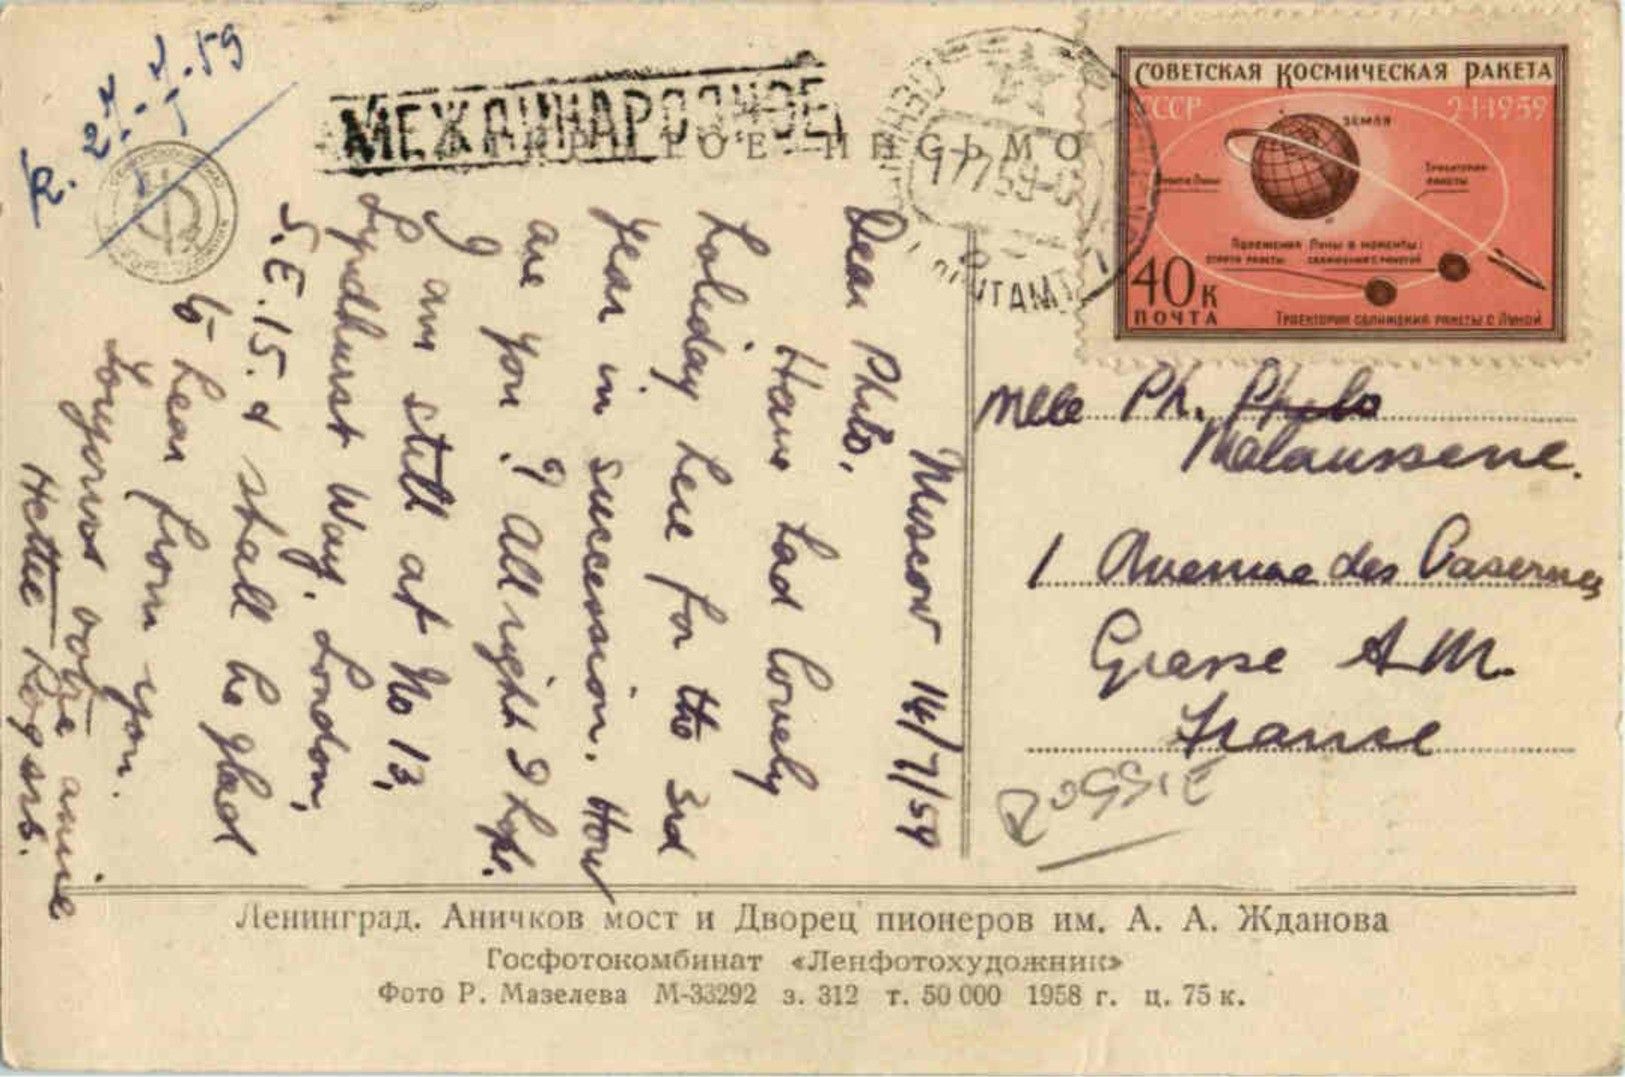 R. 27.7.59
МЕЖДУНАРОДНОЕ
ПОЧТОВОЕ ПИСЬМО
17759
СОВЕТСКАЯ КОСМИЧЕСКАЯ РАКЕТА
СССР 2-1-1959
ЗЕМЛЯ
ТРАЕКТОРИЯ РАКЕТЫ
ПОЛОЖЕНИЯ ЛУНЫ В МОМЕНТЫ:
СТАРТА РАКЕТЫ СБЛИЖЕНИЯ С РАКЕТОЙ
40 К
ПОЧТА
ТРАЕКТОРИЯ СБЛИЖЕНИЯ РАКЕТЫ С ЛУНОЙ
Moscow 14/7/59
Dear Philo,
Have had lovely
holiday here for the 3rd
year in succession. How
are you? All right I hope.
I am still at No 13,
Lyndhurst Way, London,
S.E.15. & shall be glad
to hear from you.
Toujours votre amie
Hettie
Melle Ph. Philo
Malaussene.
1 Avenue des Casernes
Grasse A.M.
France
Ленинград. Аничков мост и Дворец пионеров им. А. А. Жданова
Госфотокомбинат «Ленфотохудожник»
Фото Р. Мазелева М-33292 з. 312 т. 50 000 1958 г. ц. 75 к.